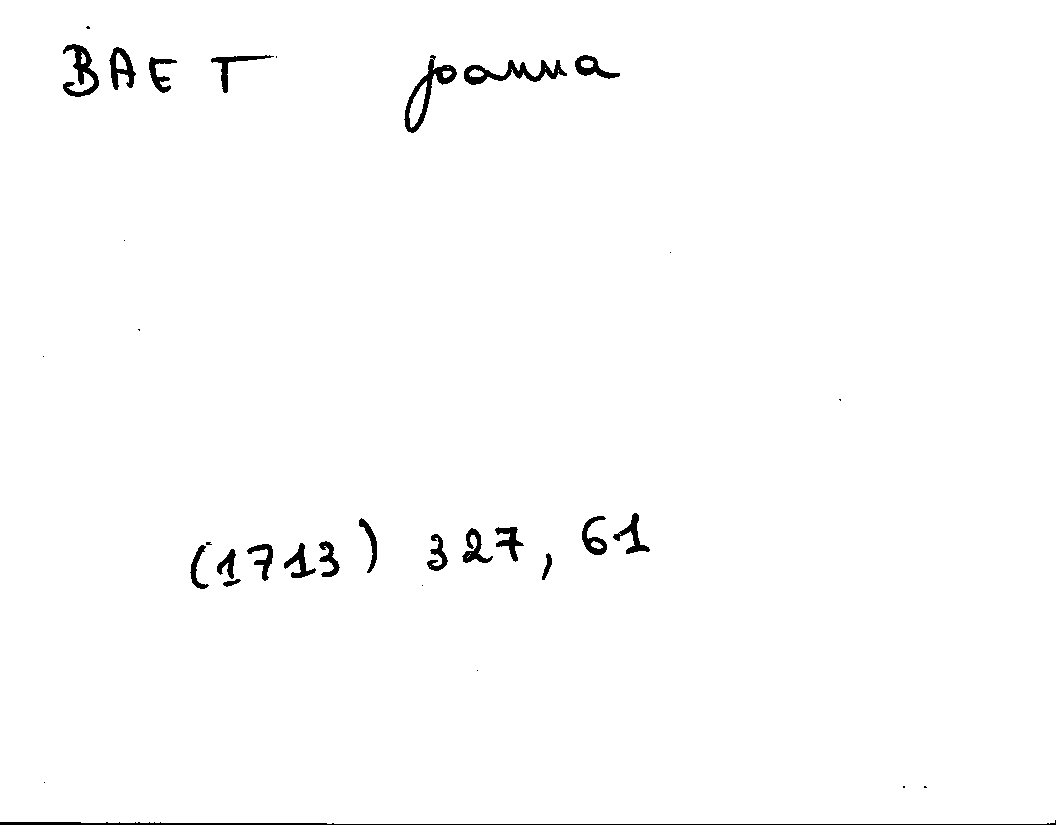 BAET joanna
(1713) 327, 61